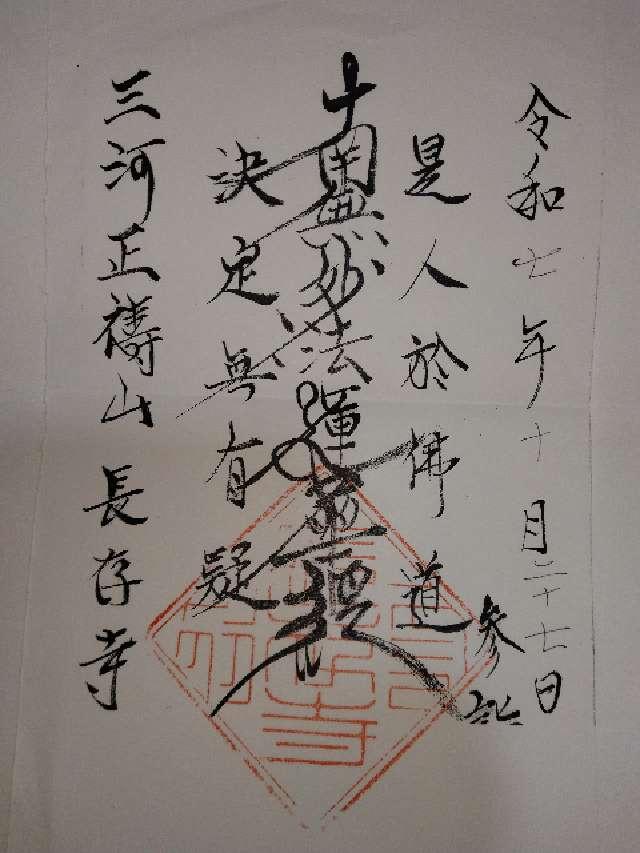 令和七年十月二十七日
是人於佛道
南無妙法蓮華経
決定無有疑
三河正禱山 長存寺